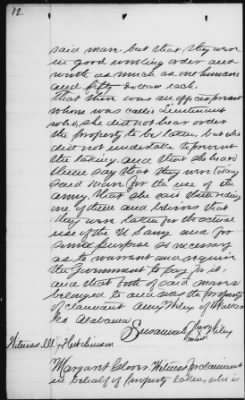 12.
said man. but that they were
in good working order and
worth as much as one hundred
and fifty dollars each.
that there was an officer present
whom was called Lieutenant
who she did not hear order
the property to be taken, but who
did not undertake to prevent
the taking. and that she heard
them say that they were
said mules for the use of the
army. that she said
one of them and
they were taken for the actual
use of the U.S army and for
some purpose so necessary
as to warrant and require
the Government to pay for it.
and that both of said
belonged to and was the property
of claimant Amy Wiley of
Co Alabama
Susannah Wiley
mark
Witness Ill Hutchinson
Margaret Glover Witness for claimant
in behalf of property taken, who is